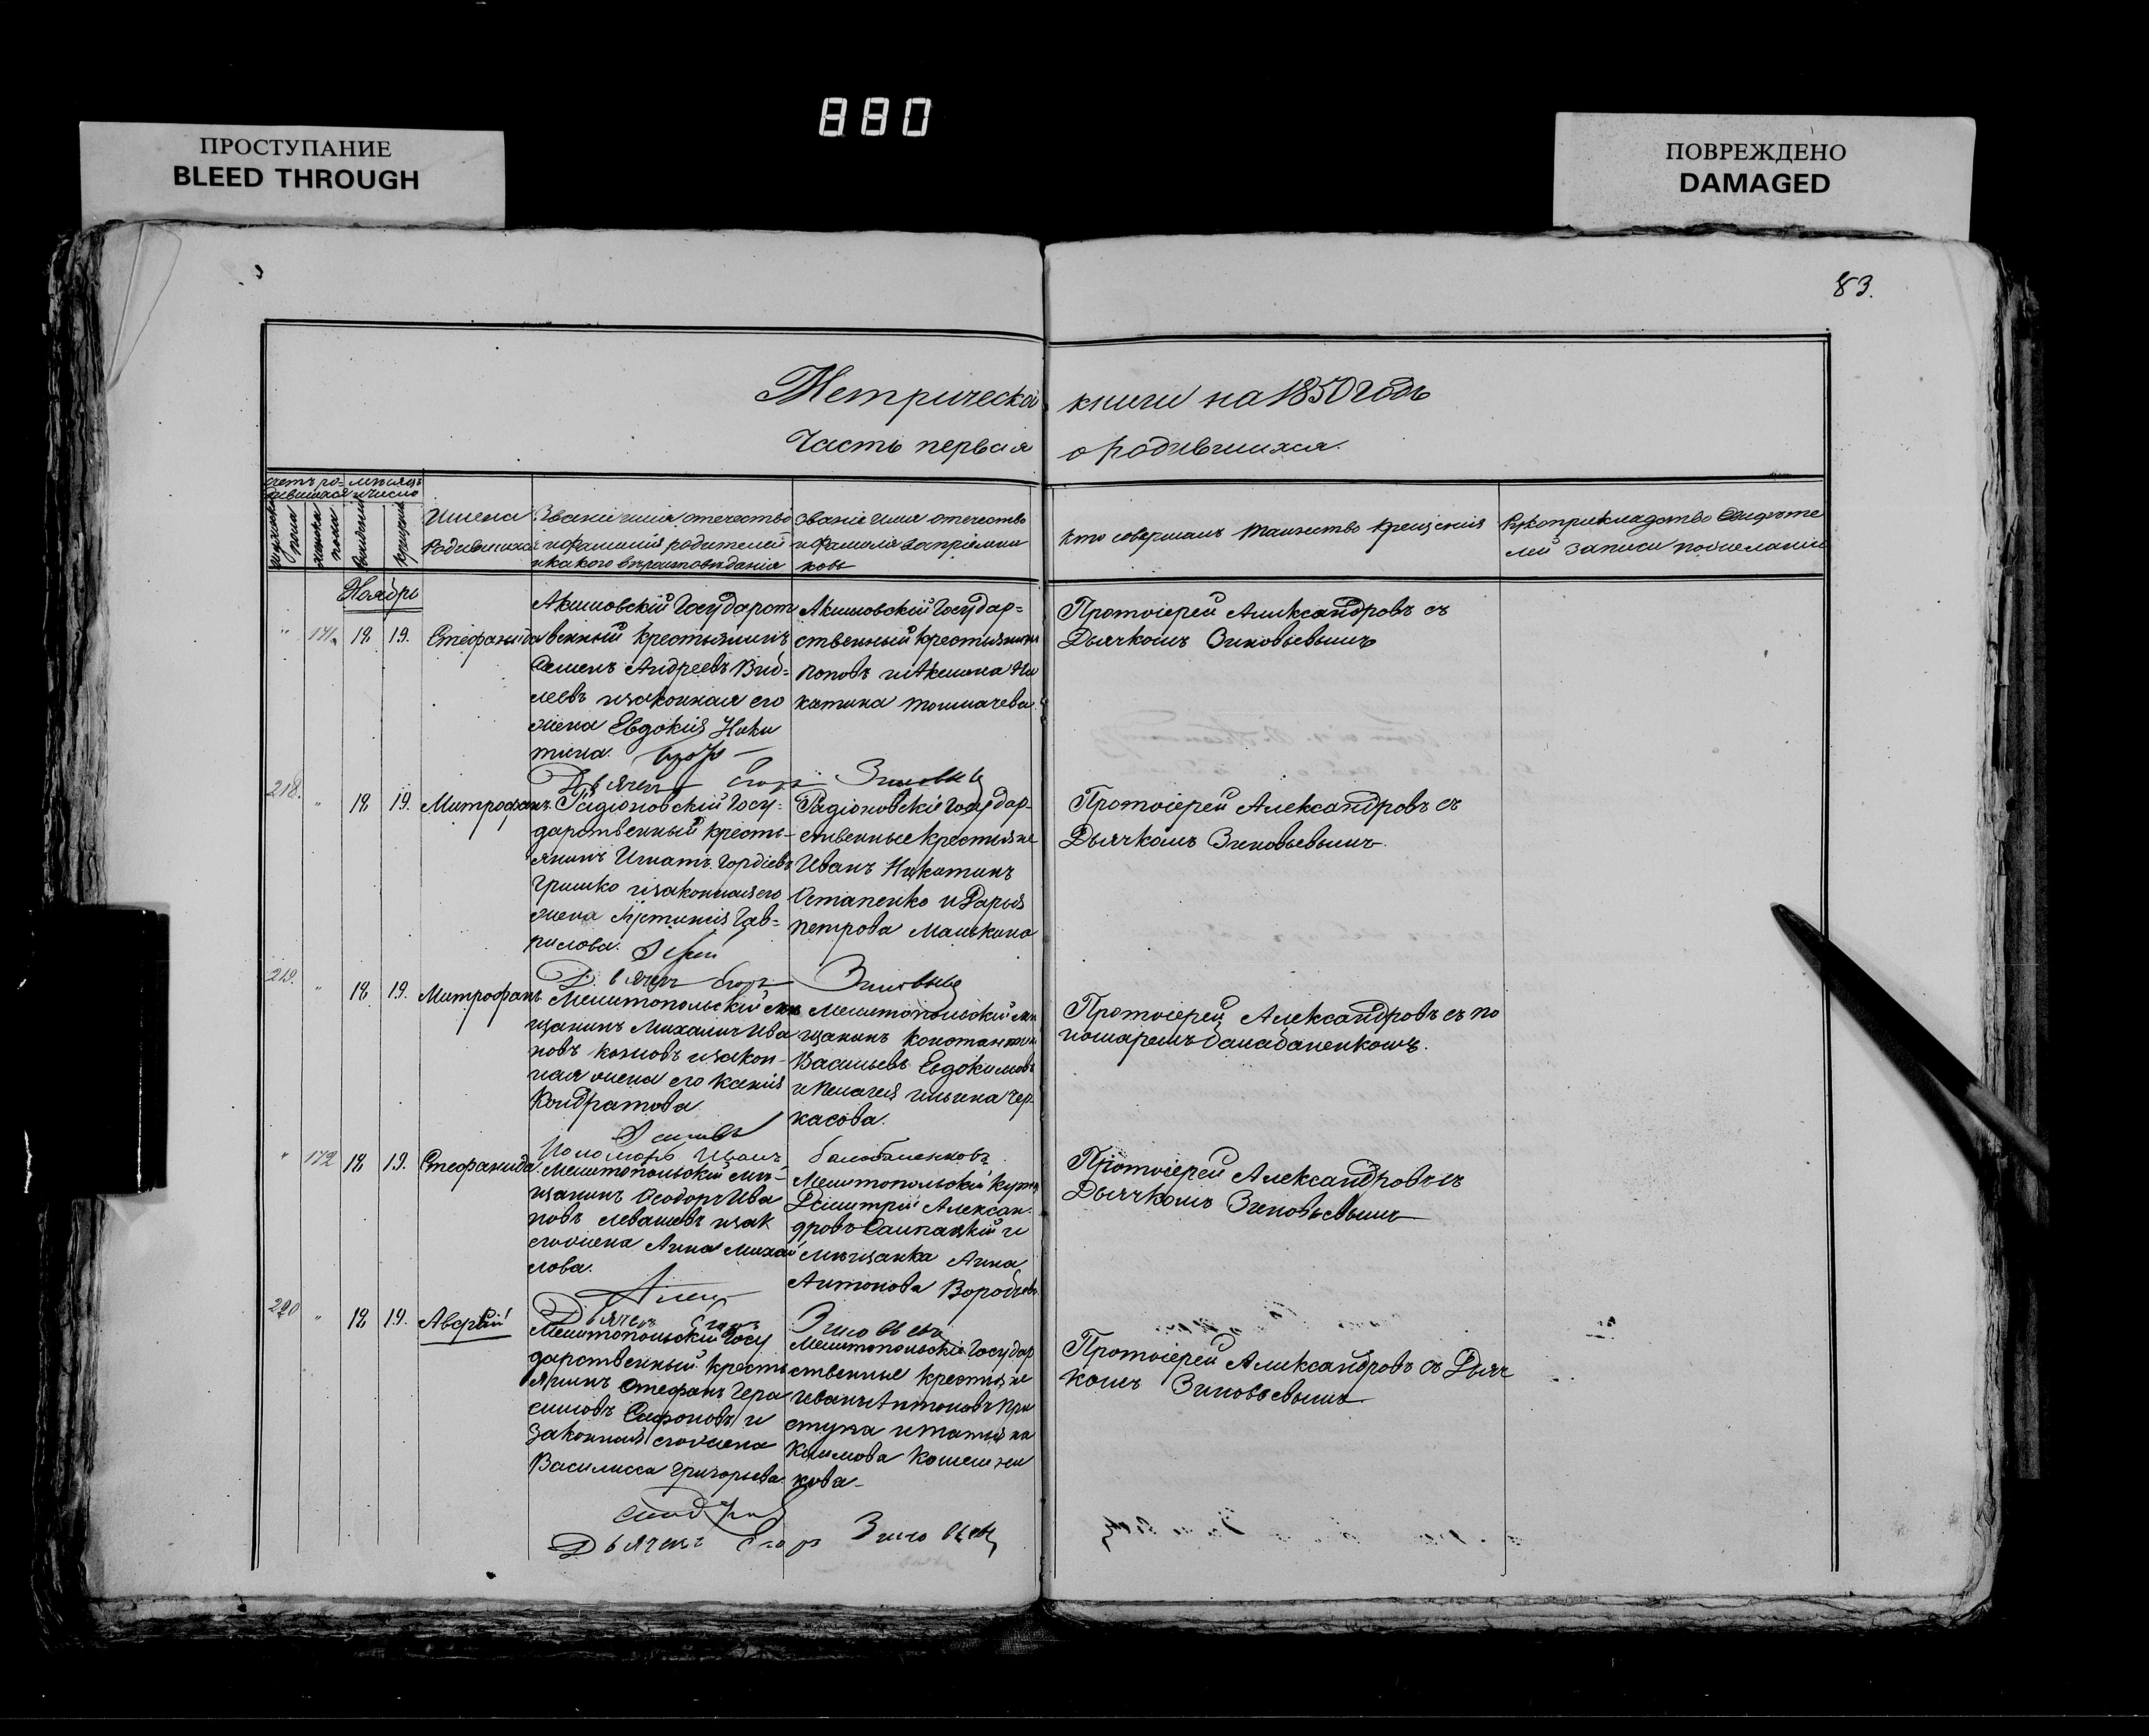 880
ПРОСТУПАНИЕ
BLEED THROUGH
ПОВРЕЖДЕНО
DAMAGED
83.
Метрическа книги на 1850 годъ
Часть первая о родившихся.
счетъ ро- мѣсяцъ
дившихся и число
мужска пола
женска пола
рожденія
крещенія
Имена
Родившихся
Званіе имя, отечество
и фамилія родителей
и какого вѣроисповѣданія
Званіе имя отечество
и фамилія воспріемни
ковъ
Кто совершалъ таинство крещенія
Рукоприкладство свидѣте
лей записи по желанію
Ноябрь
" 171. 18 19. Стефанида
Акимовскій Государст
венный крестьянинъ
Семенъ Андреевъ
и законная его
жена Евдокія Ники
тина.
Акимовскій Государ=
ственный крестьянинъ
Поповъ и Ни
китина Толмачева.
Протоіерей Александровъ съ
Дьячкомъ Зиновьевымъ
Дьячекъ Егоръ Зиновьев
218. " 18 19. Митрофанъ.
Радіоновскій Госу=
дарственный кресть-
янинъ Игнатъ Гордіевъ
Гришко и законная его
жена Устинія Гав=
рилова.
Радіоновскіе Государ-
ственные крестьяне
Иванъ Никитинъ
Остапенко и Дарья
Петрова
Протоіерей Александровъ съ
Дьячкомъ Зиновьевымъ.
Дьячекъ Егоръ Зиновьев
219. " 18 19. Митрофанъ
Мелитопольскій мѣ
щанинъ Михаилъ Ива
новъ Козловъ и закон-
ная жена его Ксенія
Кондратова
Мелитопольскій мѣ
щанинъ Константинъ
Васильевъ Евдокимовъ
и Пелагея Ильина Чер-
касова.
Протоіерей Александровъ съ по
номаремъ Балабаненкомъ.
Пономарь Иванъ Балабаненковъ
" 172 18 19. Стефанида
Мелитопольскій мѣ-
щанинъ Ѳеодоръ Ива
новъ Левашевъ и зак
его жена Анна Михай
лова.
Мелитопольскій купец
Димитрій Алексан-
дровъ и
мѣщанка Анна
Антонова Воробьева
Протоіерей Александровъ съ
Дьячкомъ Зиновьевымъ
Дьячекъ Егоръ Зиновьев
220 " 18 19. Аверкій
Мелитопольскій Госу
дарственный кресть
янинъ Стефанъ Гера
симовъ Сафоновъ и
законная его жена
Василисса Григорьева
Мелитопольскіе Государ
ственные крестьяне
Иванъ Антоновъ При
ступа и Татьяна
Климова
кова-
Протоіерей Александровъ съ Дьяч
комъ Зиновьевымъ
Дьячекъ Егоръ Зиновьев